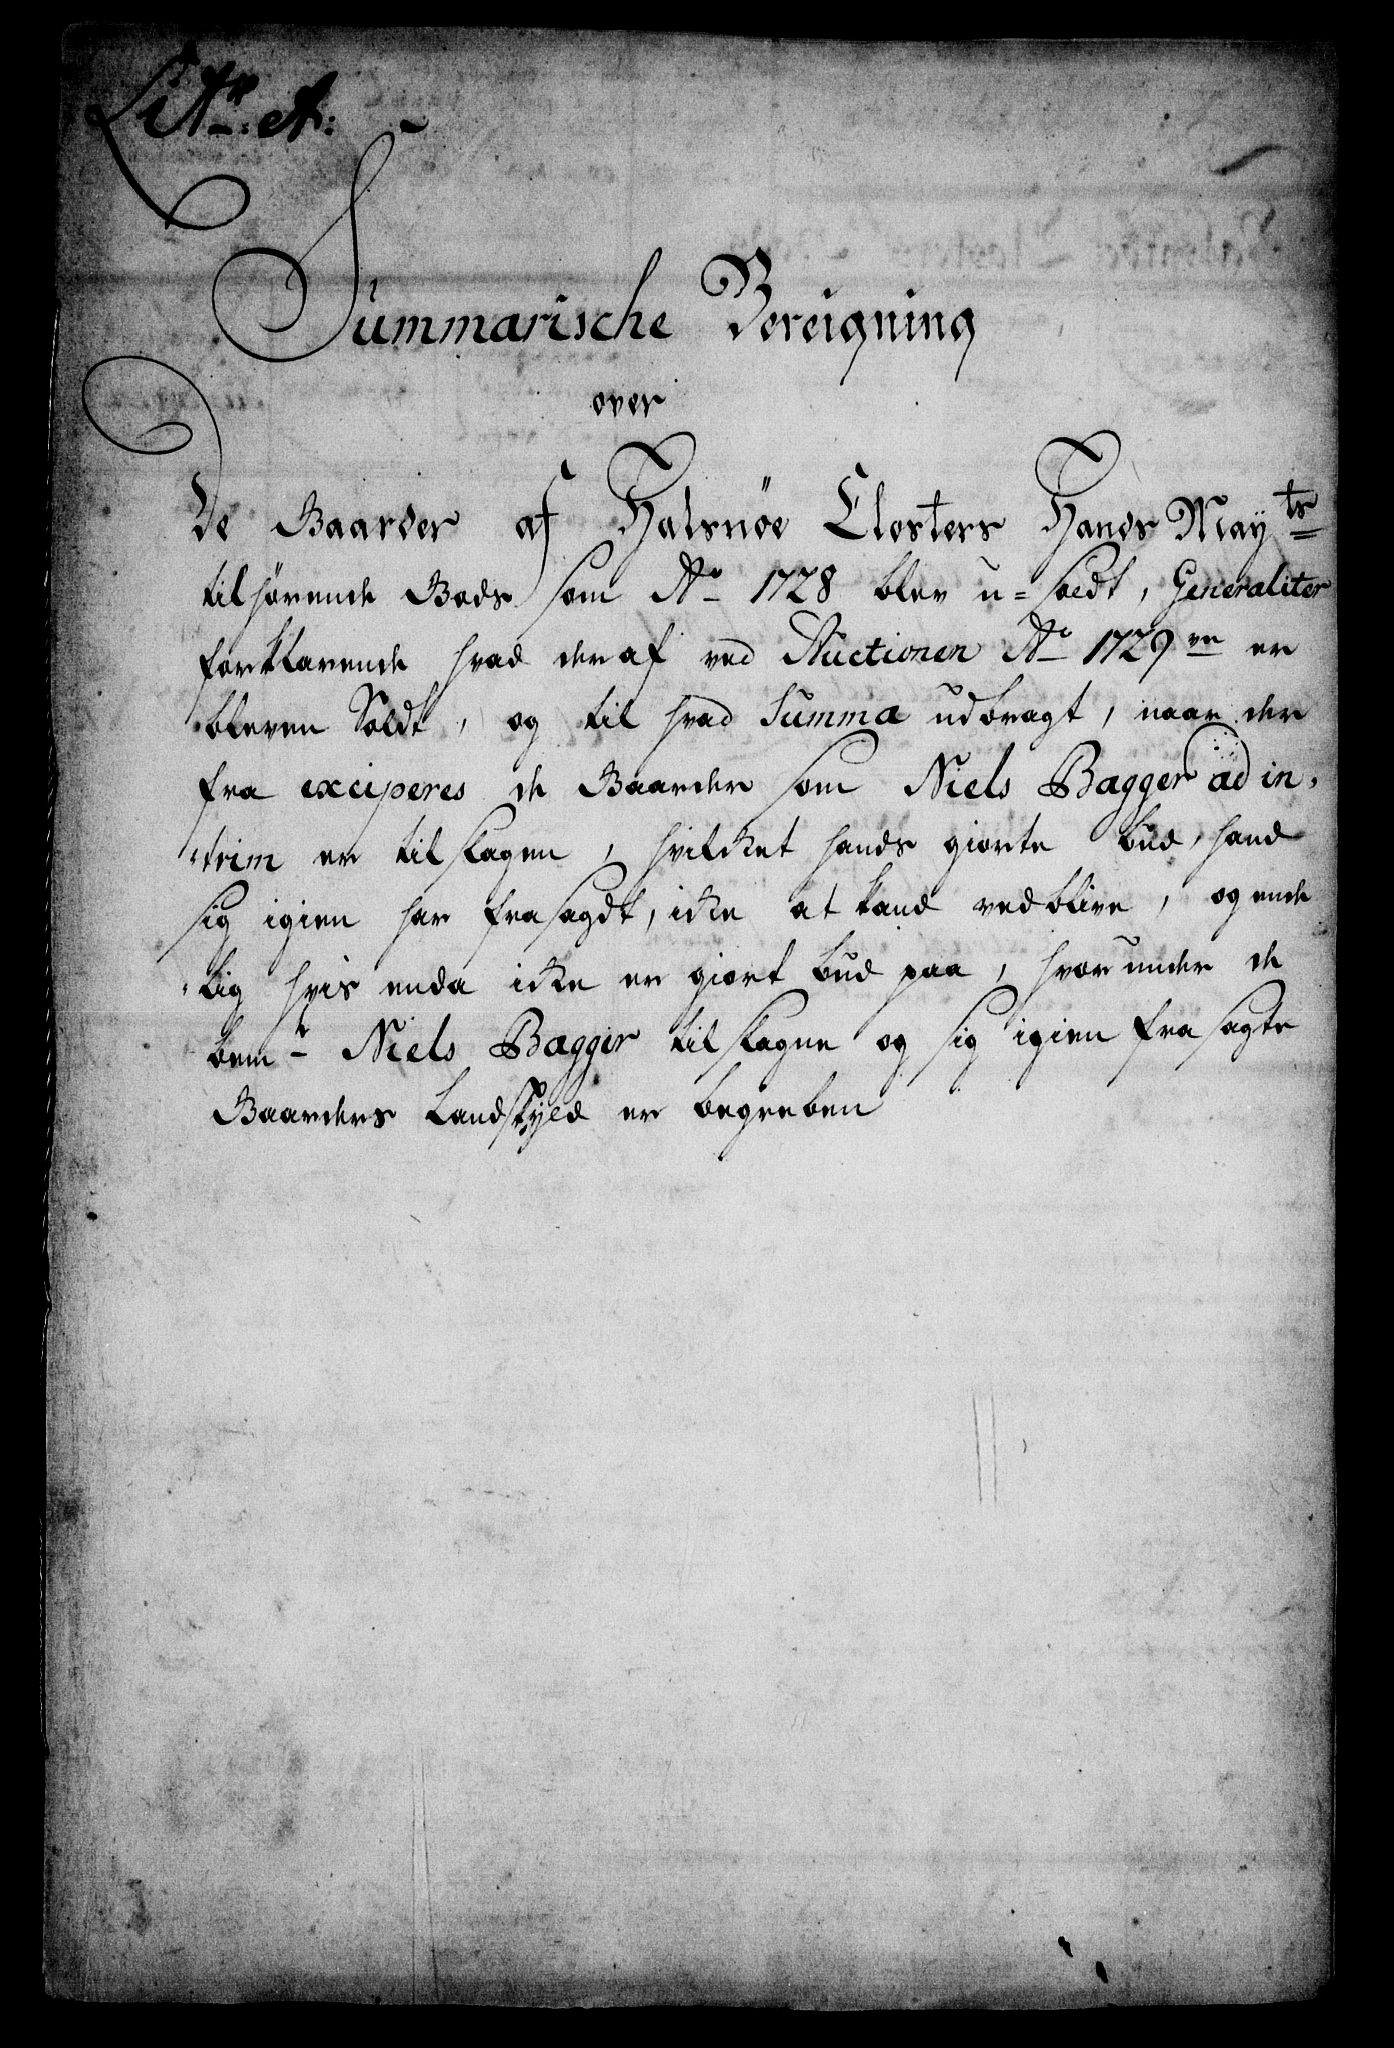 Litr: A:
Summarische Bereigning
over
De Gaarder af Halsnøe Closters Hands Mayts
tilhørende Gods som Ao 1728 blev u=soldt, Generaliter
forklarende hvad deraf ved Auctionen Ao 1729ve er
bleven Soldt, og til hvad Summa udbragt, naar der
fra exciperes de Gaarder som Niels Bagger ad in,
,trim er tilslagen, hvilcket hands giorte bud, hand
sig igien har frasagdt, icke at kand vedblive, og ende
,lig hvis enda icke er giort bud paa, hvorunder de
bemte Niels Bagger tilslagne og sig igien fra sagte
Gaarders Landskyld er begreben